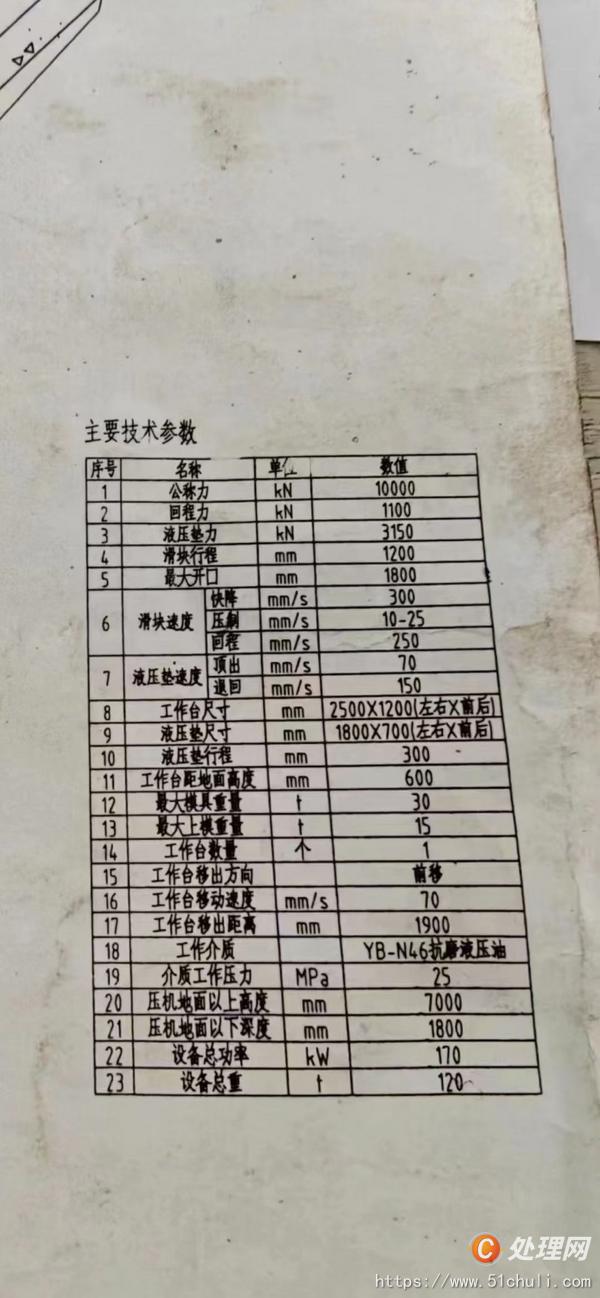 主要技术参数
序号 名称 单位 数值
1 公称力 kN 10000
2 回程力 kN 1100
3 液压垫力 kN 3150
4 滑块行程 mm 1200
5 最大开口 mm 1800
6 滑块速度 快降 mm/s 300
压制 mm/s 10-25
回程 mm/s 250
7 液压垫速度 顶出 mm/s 70
退回 mm/s 150
8 工作台尺寸 mm 2500X1200(左右X前后)
9 液压垫尺寸 mm 1800X700(左右X前后)
10 液压垫行程 mm 300
11 工作台距地面高度 mm 600
12 最大模具重量 t 30
13 最大上模重量 t 15
14 工作台数量 个 1
15 工作台移出方向 前移
16 工作台移动速度 mm/s 70
17 工作台移出距离 mm 1900
18 工作介质 YB-N46抗磨液压油
19 介质工作压力 MPa 25
20 压机地面以上高度 mm 7000
21 压机地面以下深度 mm 1800
22 设备总功率 kW 170
23 设备总重 t 120
C 处理网
https://www.51chuli.com